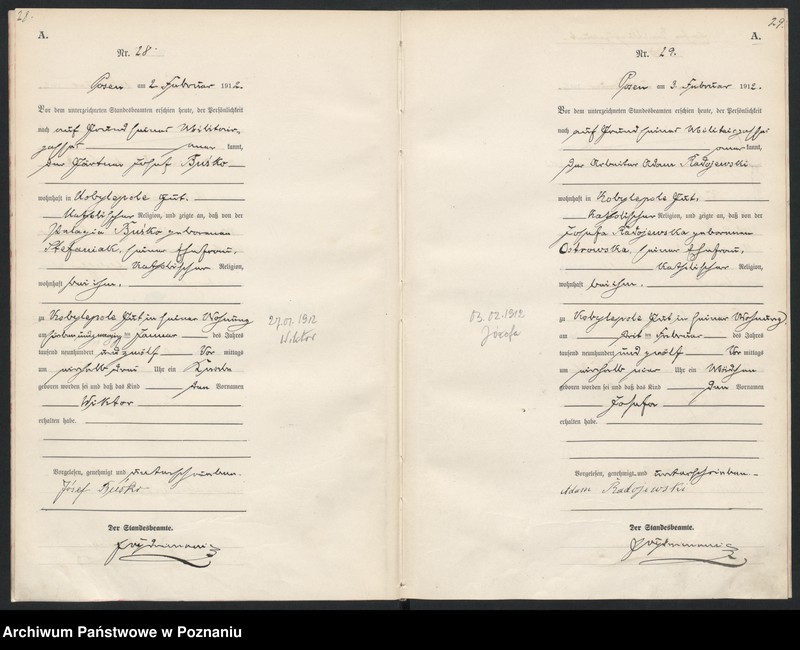 28.
A.
Nr. 28.
Posen am 2. Februar 1912.
Vor dem unterzeichneten Standesbeamten erschien heute, der Persönlichkeit
nach auf Grund seines Militair-
passes aner kannt,
der Gärtner Josef Buśko
wohnhaft in Kobylepole Gut.
katholischer Religion, und zeigte an, daß von der
Pelagia Buśko geborenen
Stefaniak, seiner Ehefrau,
katholischer Religion,
wohnhaft bei ihm,
zu Kobylepole Gut in seiner Wohnung
am siebenundzwanzig ten Januar des Jahres
tausend neunhundert und zwölf Vor mittags
um einhalb drei Uhr ein Knabe
geboren worden sei und daß das Kind den Vornamen
Wiktor
erhalten habe.
Vorgelesen, genehmigt und unterschrieben.
Józef Buśko
Der Standesbeamte.
27.01.1912
Wiktor
29.
A.
Nr. 29.
Posen am 3. Februar 1912.
Vor dem unterzeichneten Standesbeamten erschien heute, der Persönlichkeit
nach auf Grund seines Militairpasses
aner kannt,
der Arbeiter Adam Radojewski
wohnhaft in Kobylepole Gut,
katholischer Religion, und zeigte an, daß von der
Josefa Radojewska geborenen
Ostrowska, seiner Ehefrau,
katholischer Religion,
wohnhaft bei ihm,
zu Kobylepole Gut in seiner Wohnung,
am drit ten Februar des Jahres
tausend neunhundert und zwölf Vor mittags
um einhalb vier Uhr ein Mädchen
geboren worden sei und daß das Kind den Vornamen
Josefa
erhalten habe.
Vorgelesen, genehmigt und unterschrieben
Adam Radojewski
Der Standesbeamte.
03.02.1912
Józefa
Archiwum Państwowe w Poznaniu